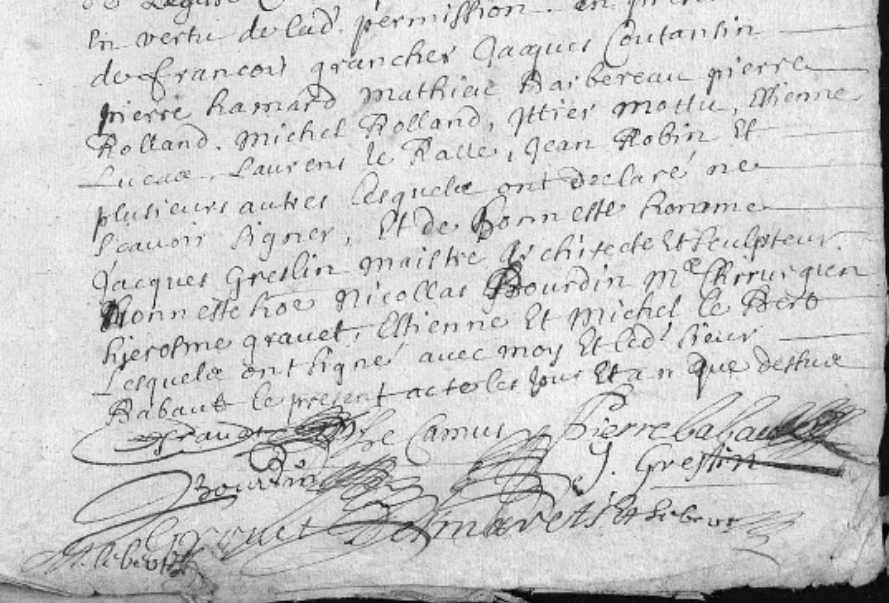 de Leglise
En vertu de lad. permission. en
de francois grancher Jacques Coutansin
pierre hamard mathieu Barbereau pierre
Rolland. Michel Rolland, Ittier mottu, Estienne
Lucas, Laurens le Ralle, Jean Robin Et
plusieurs autres lesquels ont declaré ne
scavoir signer, Et de honneste homme
Jacques Greslin maistre Architecte Et sculpteur
honneste hoe Nicollas Bourdin Me Chirurgien
hierosme gravet, Estienne Et Michel le Bert
Lesquels ont signé avec moy Et led. sieur
Rabault le present acte les Jour Et an que dessus
Le Camus Pierre
Bourdin J. Greslin
Gravet Desmarets E. lebert
M. lebert